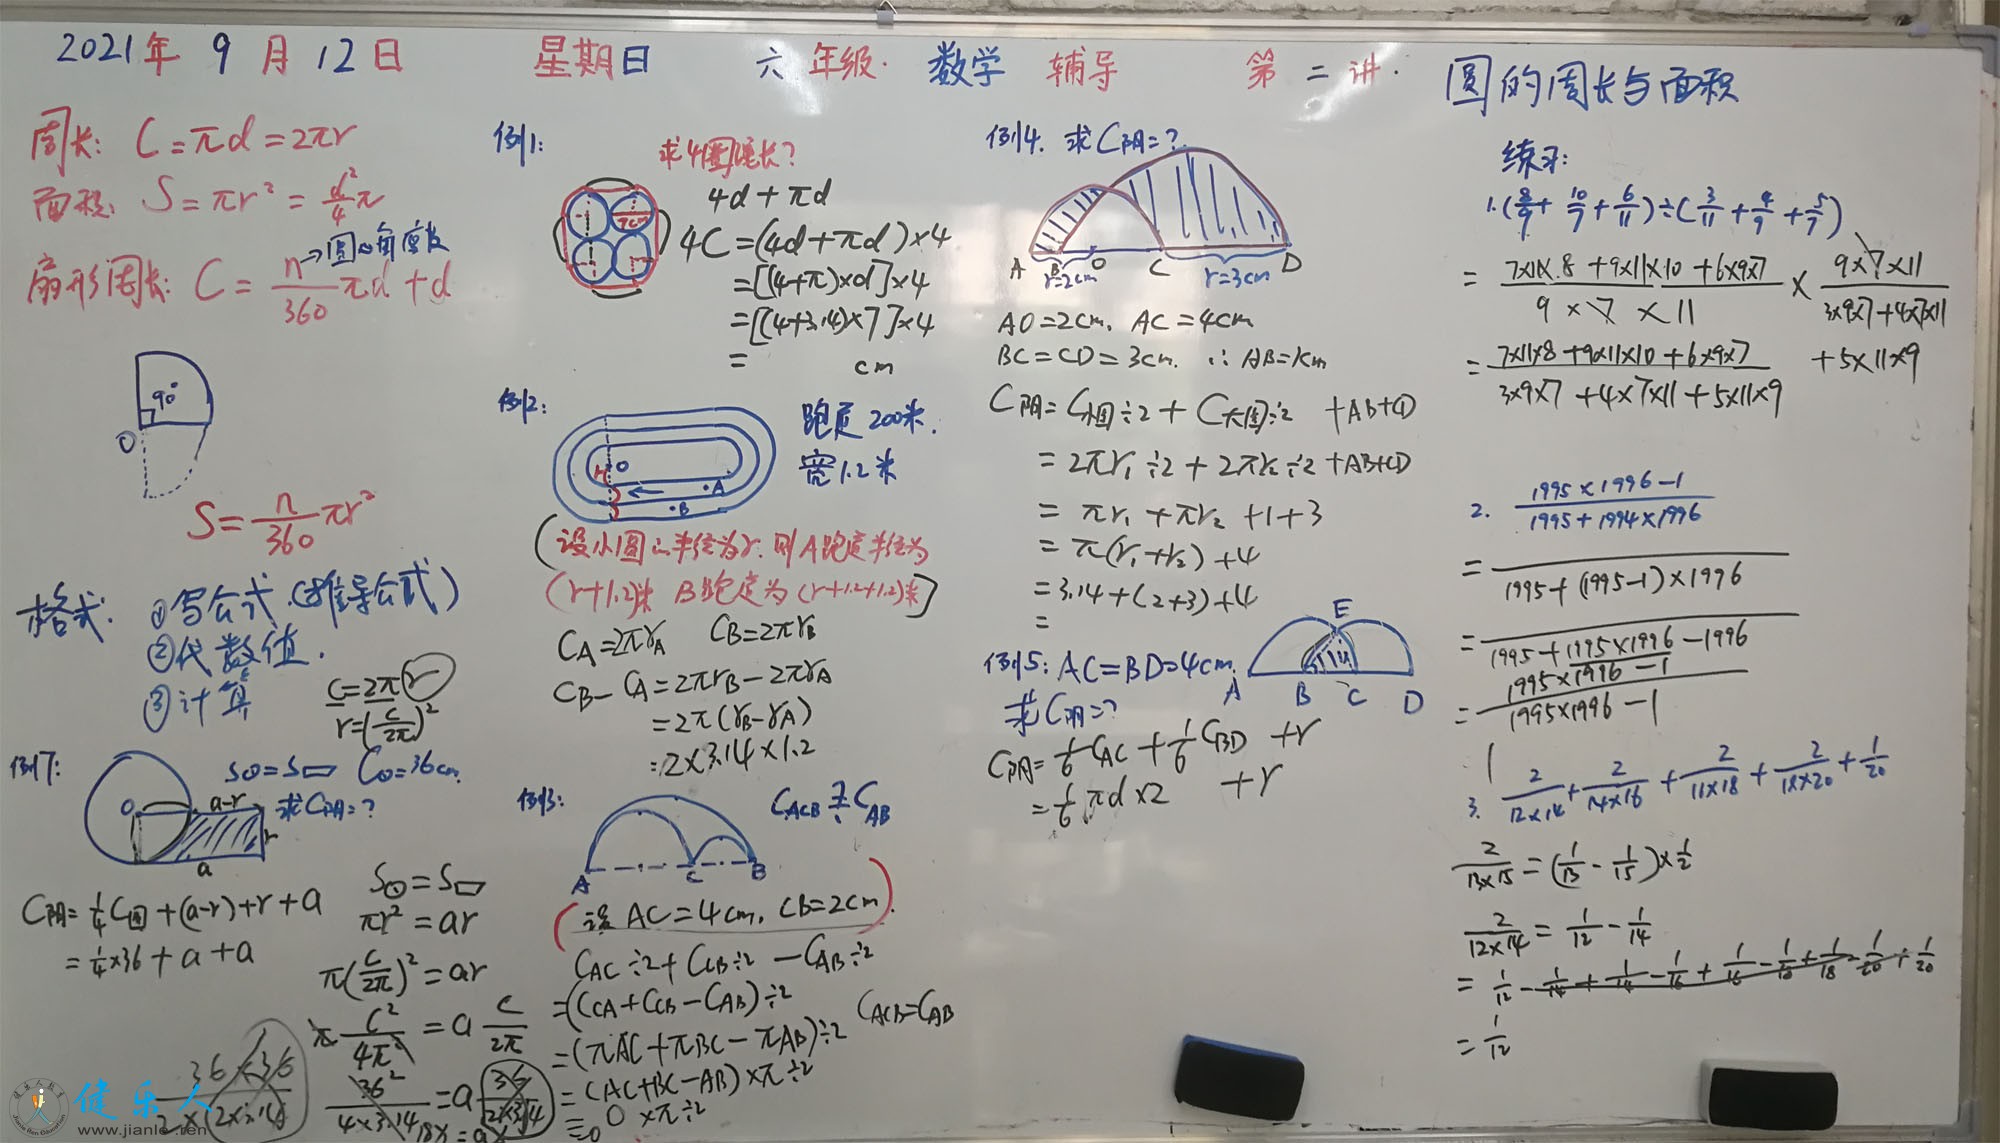 2021年 9月12日 星期日 六年级·数学 辅导 第二讲· 圆的周长与面积
周长: C=πd=2πr
面积: S=πr²=d²/4 π
→圆心角度数
扇形周长: C=n/360 πd+d
90°
O
S=n/360 πr²
格式: ①写公式.(推导公式)
②代数值.
③计算
C=2πr
r=(C/2π)²
例7:
S⊙=S▱ C⊙=36cm
求C阴=?
O
a-r
r
a
C阴=1/4 C圆+(a-r)+r+a
=1/4×36+a+a
S⊙=S▱
πr²=ar
π(C/2π)²=ar
π C²/4π²=a C/2π
36²/4×3.14=a 36/2×3.14
36×36
健乐人
www.jianle.ren
例1:
求4圈周长?
7cm
4d+πd
4C=(4d+πd)×4
=[(4+π)×d]×4
=[(4+3.14)×7]×4
= cm
例2:
跑道200米.
宽1.2米
O
←
·A
·B
(设小圆的半径为r.则A跑道半径为
(r+1.2)米 B跑道为(r+1.2+1.2)米)
CA=2πrA CB=2πrB
CB-CA=2πrB-2πrA
=2π(rB-rA)
=2×3.14×1.2
例3:
CACB CAB
A C B
(设AC=4cm, CB=2cm).
CAC÷2+CCB÷2-CAB÷2
=(CCA+CCB-CAB)÷2
CACB=CAB
=(πAC+πBC-πAB)÷2
=(AC+BC-AB)×π÷2
=0×π÷2
=0
例4. 求C阴=?
A B O C D
r=2cm r=3cm
AO=2cm, AC=4cm
BC=CD=3cm. ∴AB=1cm
C阴=C小圆÷2+C大圆÷2+AB+CD
=2πr₁÷2+2πr₂÷2+AB+CD
=πr₁+πr₂+1+3
=π(r₁+r₂)+4
=3.14+(2+3)+4
=
例5: AC=BD=4cm.
求C阴=?
E
A B C D
C阴=1/6 CAC+1/6 CBD+r
=1/6 πd×2+r
练习:
1.(8/9+10/7+6/11)÷(3/11+4/9+5/7)
=7×11×8+9×11×10+6×9×7/9×7×11 × 9×7×11/3×9×7+4×7×11+5×11×9
=7×11×8+9×11×10+6×9×7/3×9×7+4×7×11+5×11×9
2. 1995×1996-1/1995+1994×1996
= /1995+(1995-1)×1996
= /1995+1995×1996-1996
=1995×1996-1/1995×1996-1
1
3. 2/12×14+2/14×16+2/11×18+2/18×20+1/20
2/13×15=(1/13-1/15)×1/2
2/12×14=1/12-1/14
=1/12-1/14+1/14-1/16+1/16-1/18+1/18-1/20+1/20
=1/12